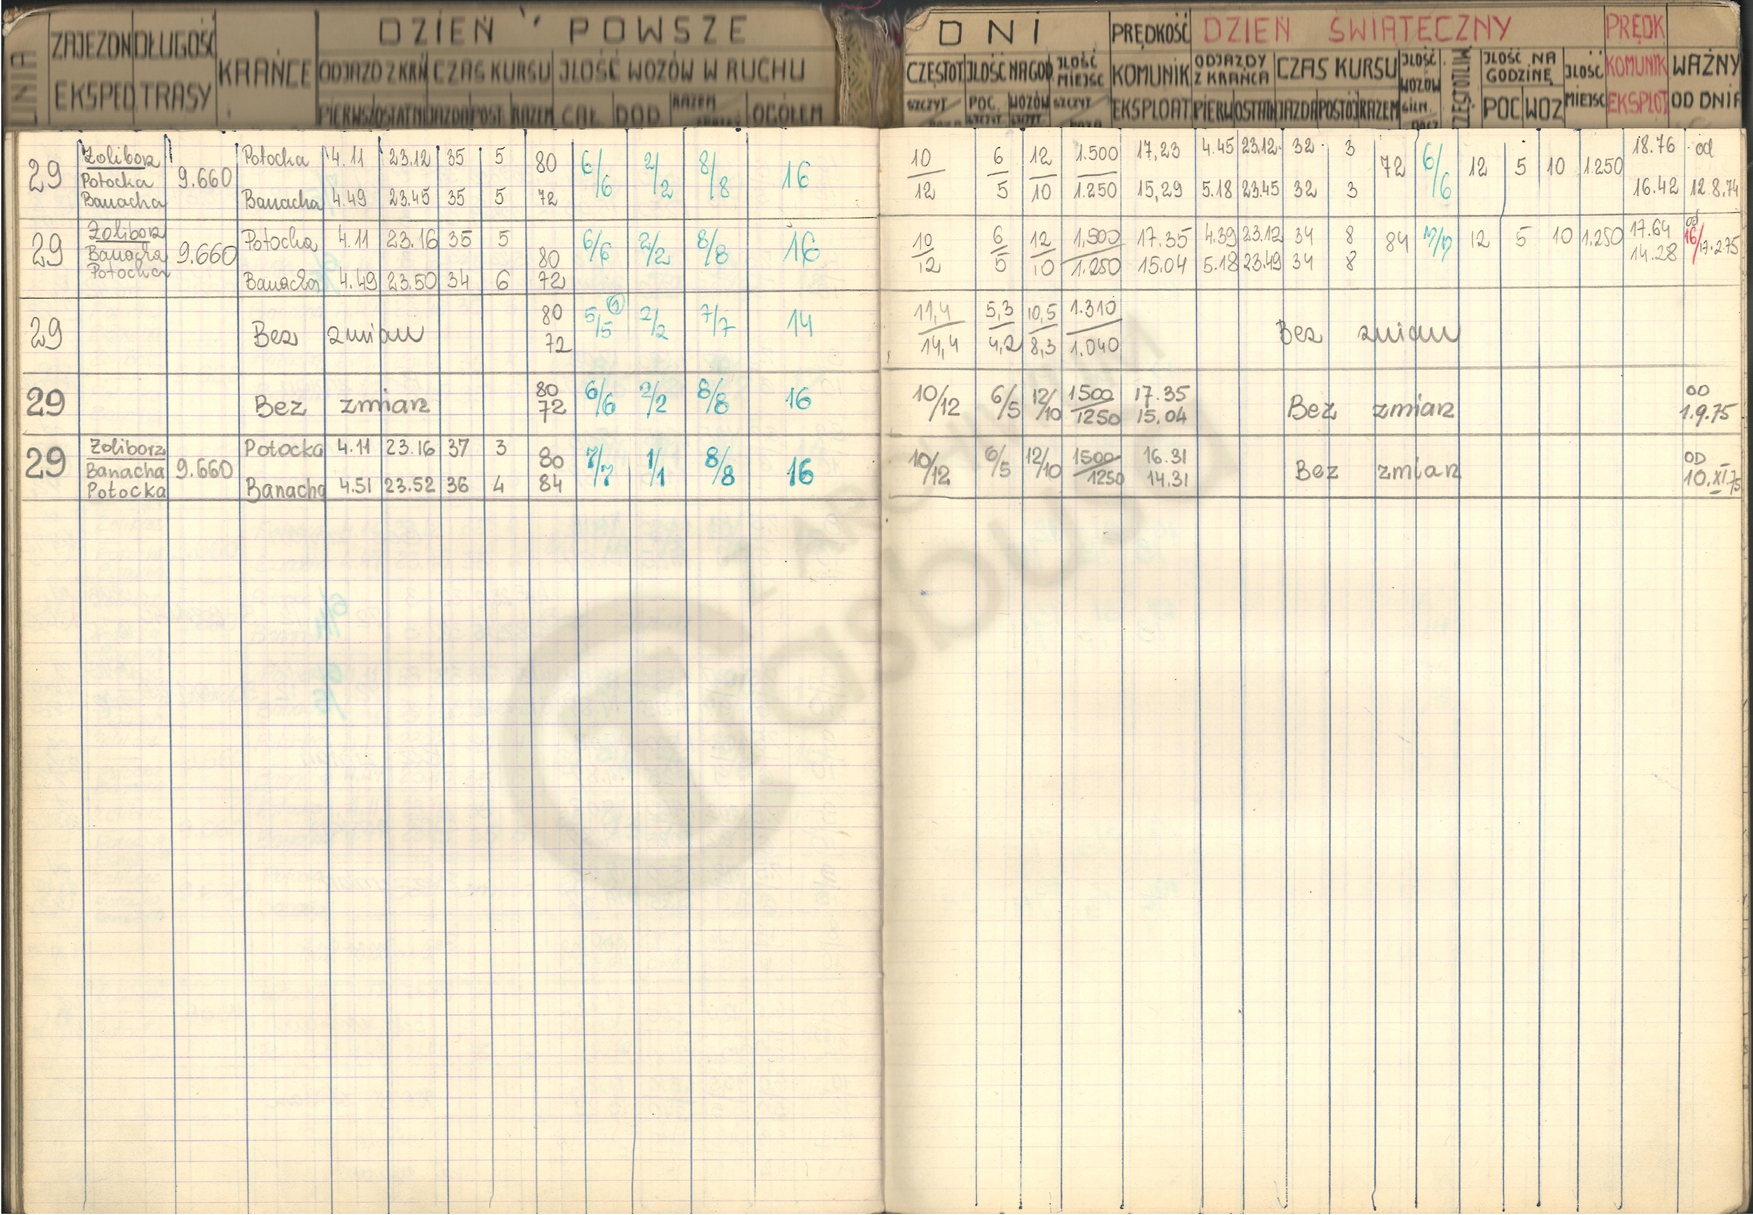 LINIA ZAJEZDN DŁUGOŚĆ KRAŃCE DZIEŃ POWSZE DNI PRĘDKOŚĆ DZIEŃ ŚWIĄTECZNY PRĘDK
EKSPED TRASY ODJAZD Z KRAŃ CZAS KURSU JLOŚĆ WOZÓW W RUCHU CZĘSTOT JLOŚĆ NA GOD JLOŚĆ MIEJSC KOMUNIK ODJAZDY Z KRAŃCA CZAS KURSU JLOŚĆ WOZÓW CZĘSTOTLIW JLOŚĆ NA GODZINĘ JLOŚĆ MIEJSC KOMUNIK WAŻNY
PIERWSZ OSTATNI JAZDA POST. RAZEM CAŁ. DOD. RAZEM OGÓŁEM SZCZYT POC. WOZÓW SZCZYT EKSPLOAT PIERW OSTATN JAZDA POSTÓJ RAZEM POC WOZ EKSPLOT OD DNIA
29 Żoliborz Potocka 4.11 23.12 35 5 80 6/6 2/2 8/8 16 10 6 12 1.500 17,23 4.45 23.12 32 3 72 6/6 12 5 10 1.250 18.76 od
Potocka 9.660
Banacha Banacha 4.49 23.45 35 5 72 12 5 10 1.250 15,29 5.18 23.45 32 3 16.42 12 8.74
29 Żoliborz Potocka 4.11 23.16 35 5 80 6/6 2/2 8/8 16 10 6 12 1.500 17.35 4.39 23.12 34 8 84 7/7 12 5 10 1.250 17.64 od
Banacha 9.660
Potocka Banacha 4.49 23.50 34 6 72 12 5 10 1.250 15.04 5.18 23.49 34 8 14.28
29 Bez zmian 80 5/5 2/2 7/7 14 11,4 5,3 10,5 1.310 Bez zmian
72 14,4 4,2 8,3 1.040
29 Bez zmian 80 6/6 2/2 8/8 16 10/12 6/5 12/10 1500 17.35 Bez zmian OD
72 1250 15.04 1.9.75
29 Żoliborz Potocka 4.11 23.16 37 3 80 7/7 1/1 8/8 16 10/12 6/5 12/10 1500 16.31 Bez zmian OD
Banacha 9.660
Potocka Banacha 4.51 23.52 36 4 84 1250 14.31 10.XI.75
Z ARCHIWUM
Trasbusa